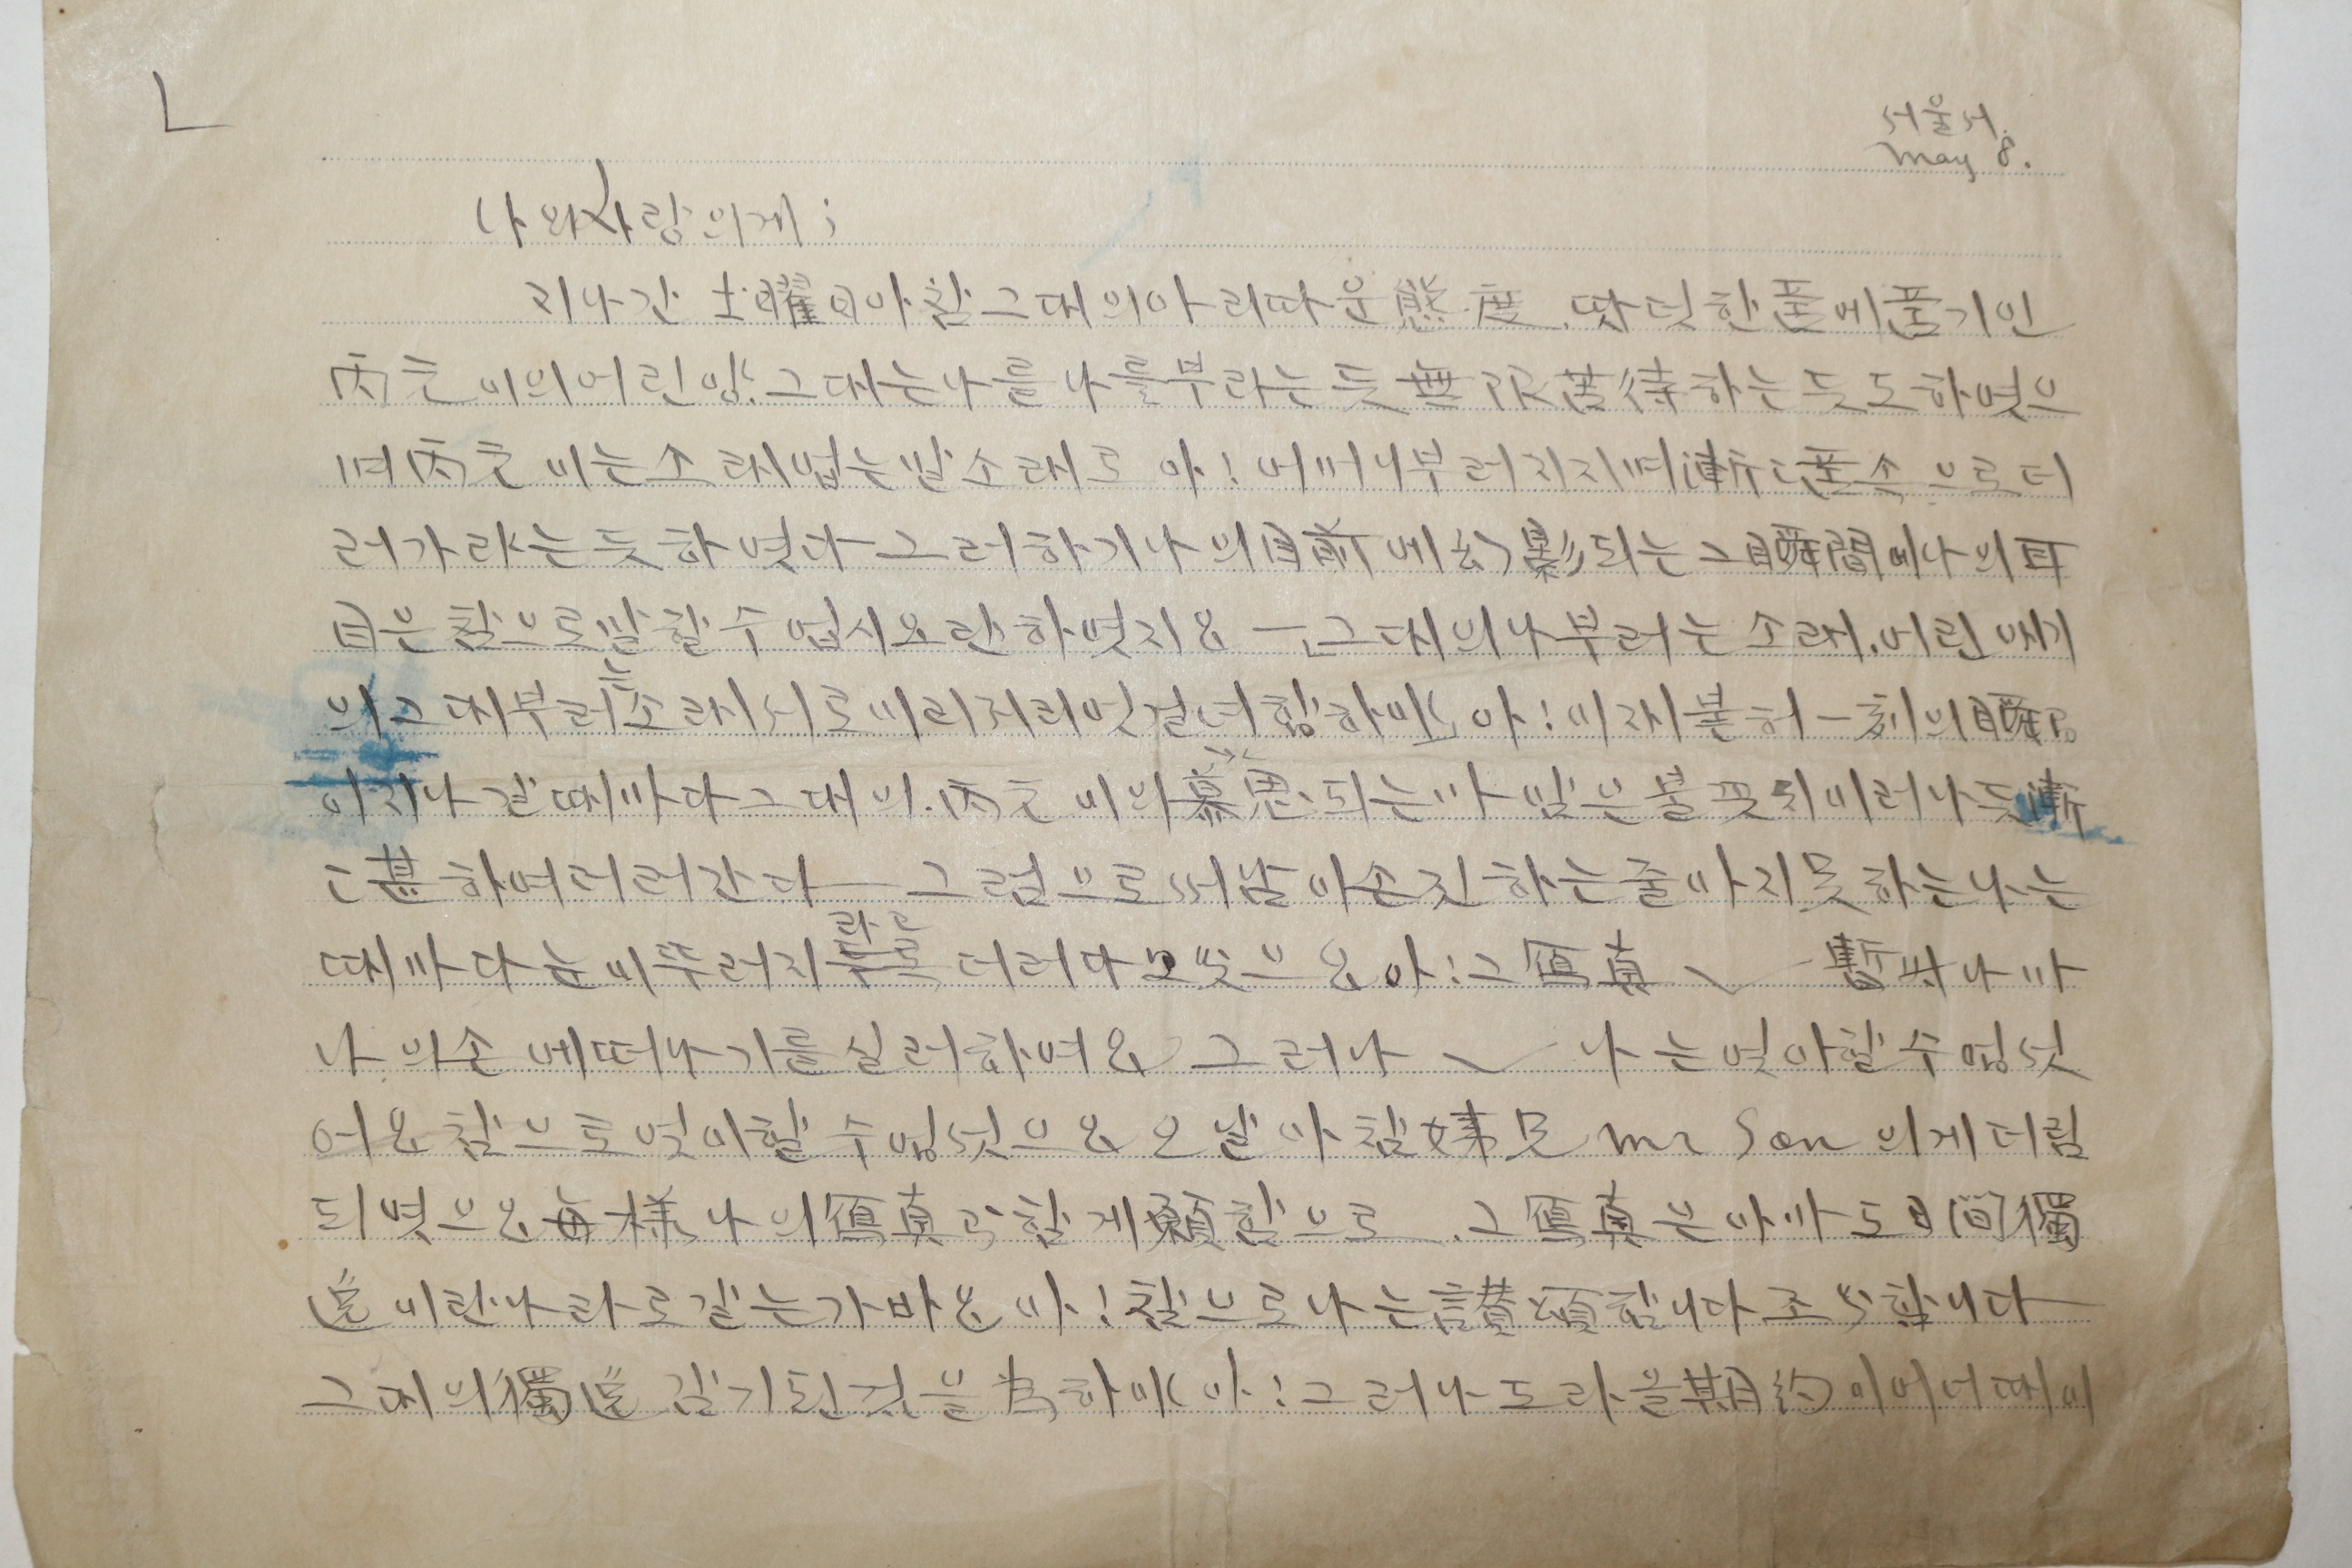 서울서.
May 8.
나의사랑의게;
지나간 土曜日아참그대의아리따운態度.땃덧한품에품기인
丙元이의어린양.그대는나를나를부라는듯無限苦待하는듯도하엿으
며丙元이는소래업는발소래로 아!어머니부러지지며漸々품속으로더
러가라는듯하엿다 그러하기나의目前에幻影되는그瞬間에나의耳
目은참으로말할수업시요란하엿지요 그대의나부러는소래.어린애기
의그대부러는소래서로이리저리엇걸녀 하며 아!이재불허一刻의瞬間
이지나갈때마다그대의.丙元이의慕思되는마암은불꽃치이러나듯漸
々甚하여러러간다 그럼으로써날아손진하는줄아지못하는나는
때마다눈이뚜러지라고 더러다보앗으요아!그寫真 暫시나마
나의손에떠나기를실러하여요 그러나 나는엇아할수업섯
어요참으로엇이할수업섯으요오날아참妹兄 Mr Son의게더림
되엿으요每樣나의寫真과함게願함으로.그寫真은아마도日間獨
逸이란나라로갈는가바요아!참으로나는讃頌합니다조 합니다
그대의獨逸가기된것을為하여아!그러나도라올期約이어너때이